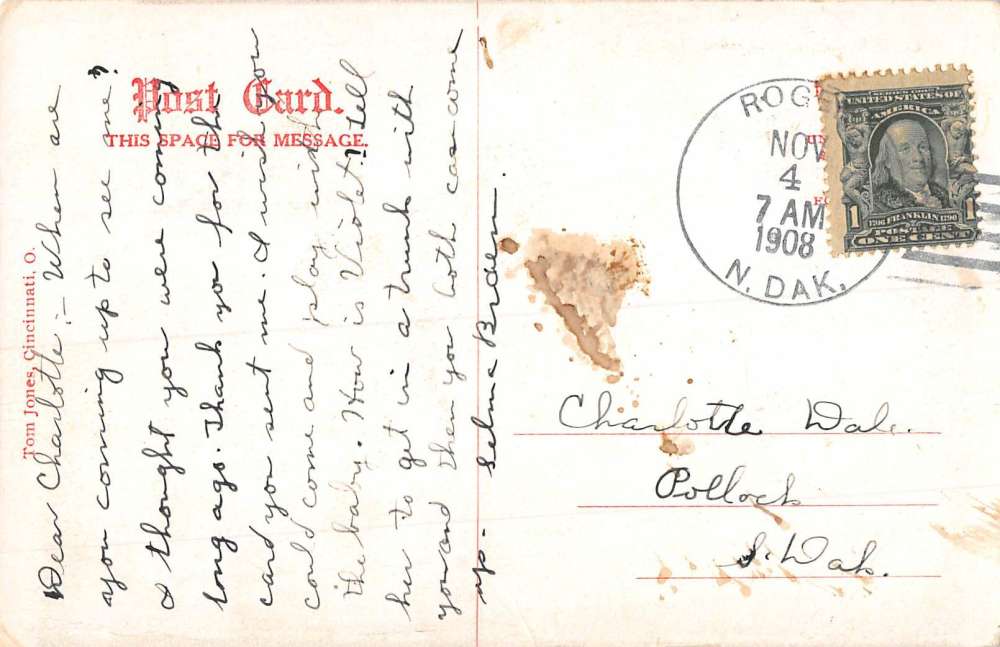 Post Card.
THIS SPACE FOR MESSAGE.
Tom Jones, Cincinnati, O.
Dear Charlotte:- When are
you coming up to see me?
I thought you were coming
long ago. Thank you for the
card you sent me. I wish you
could come and play with
the baby. How is Violet? Tell
her to get in a trunk with
you and then you both can come
up. Selma Braden.
NOV
4
7 AM
1908
N. DAK.
UNITED STATES OF
AMERICA
1 1706 FRANKLIN 1790 1
POSTAGE
ONE CENT
Charlotte Dale.
Pollock
S. Dak.